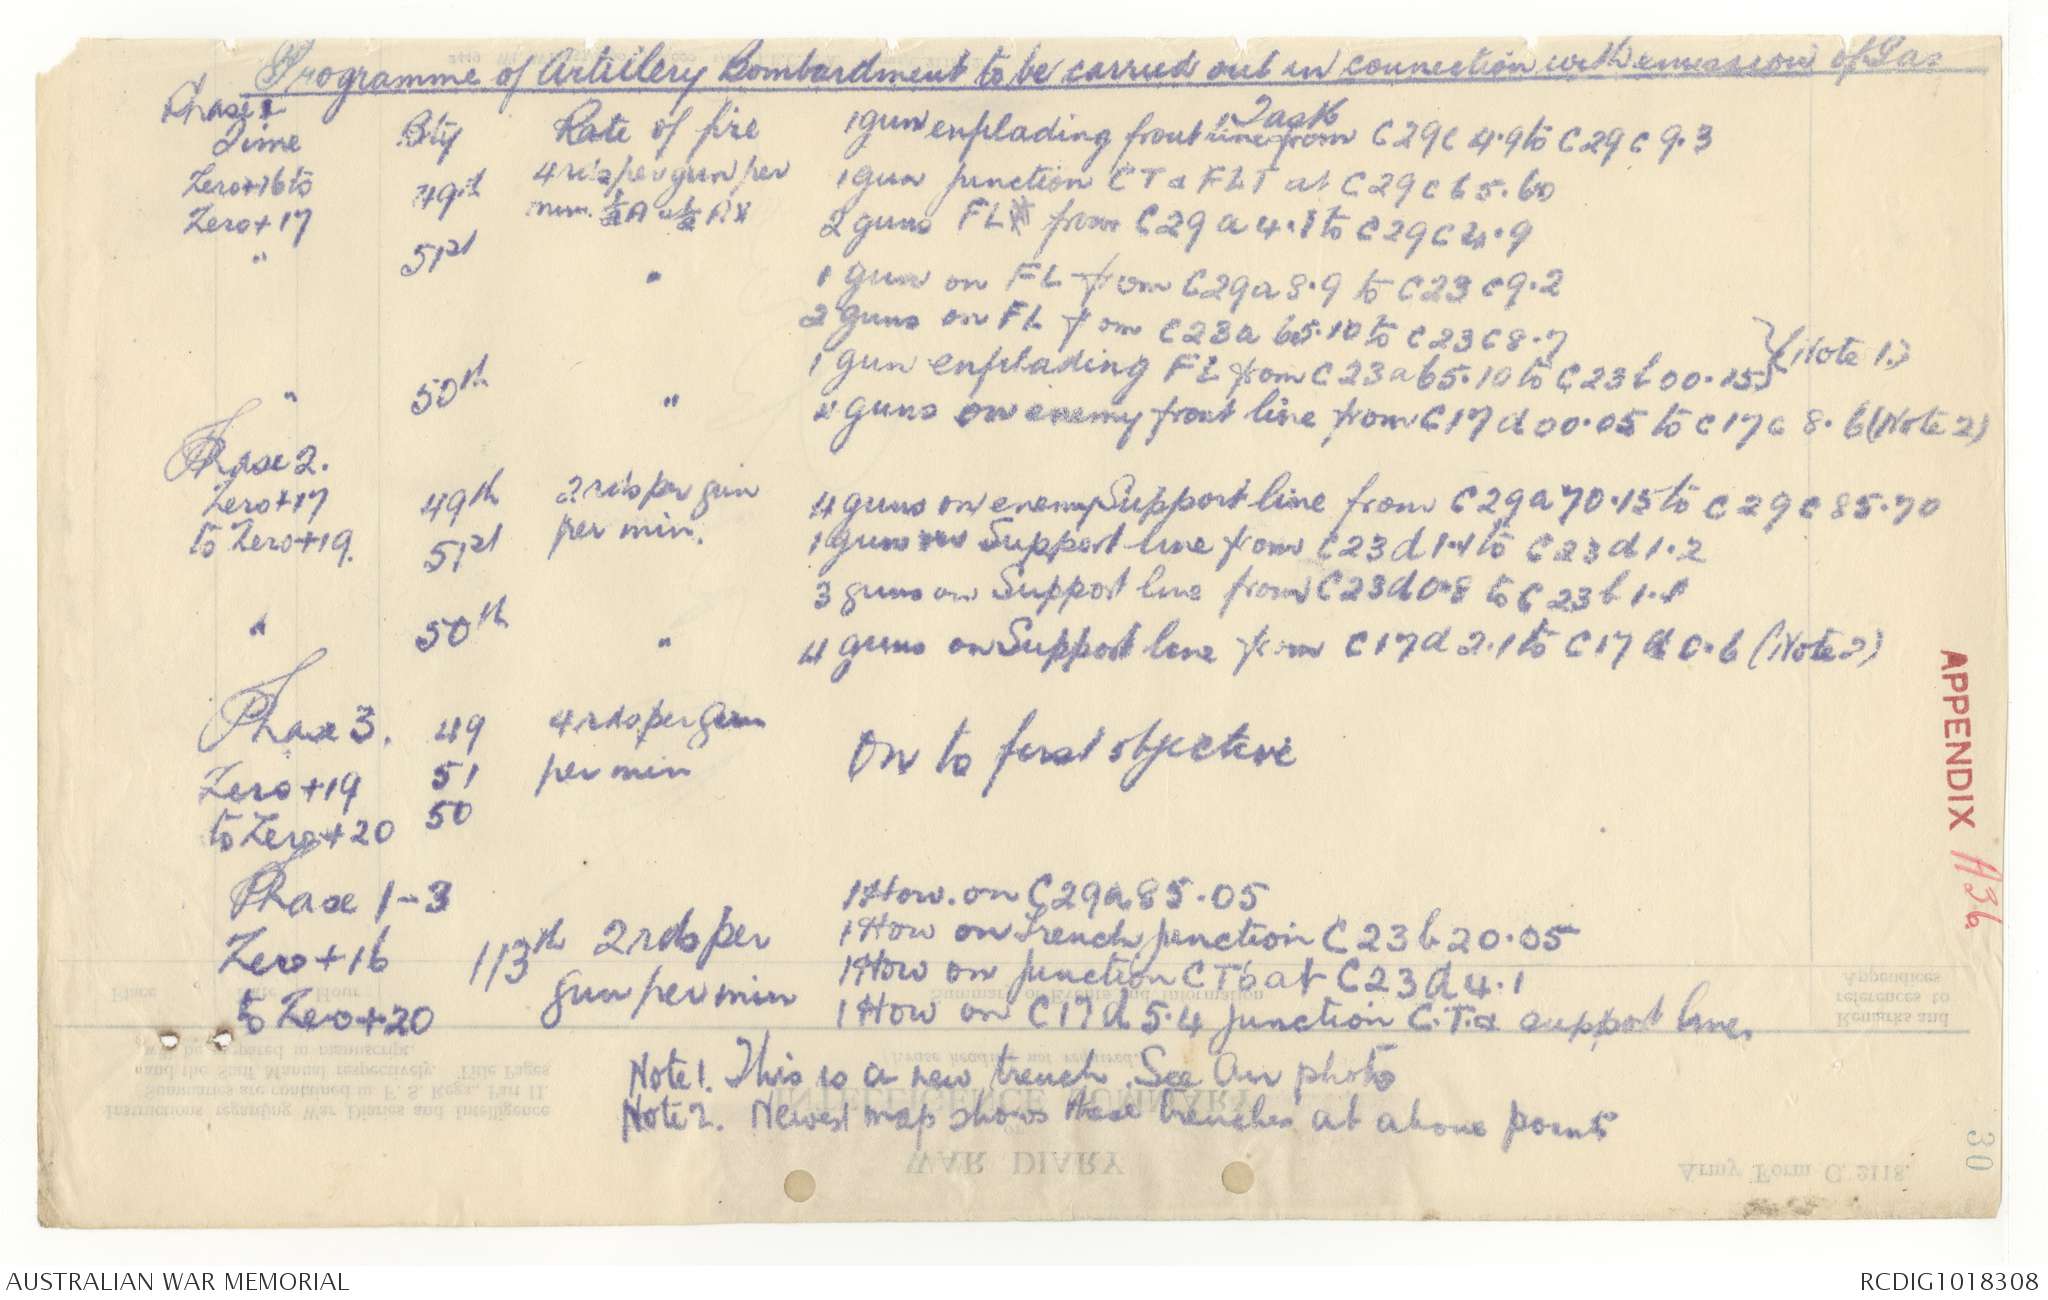 Programme of Artillery Bombardment to be carried out in connection with emission of Gas
Phase 1
Time Bty Rate of fire Task
1 gun enfilading front line from C29c 4.9 to C29c 9.3
Zero+16 to 49th 4 rds per gun per 1 gun junction CT & FLT at C29c 65.60
Zero+17 min. ½A & ½AX 2 guns FL from C29a 4.1 to C29c 4.9
" 51st " 1 gun on FL from C29a 8.9 to C23c 9.2
2 guns on FL from C23a 65.10 to C23c 8.7
1 gun enfilading FL from C23a 65.10 to C23b 00.15 } (Note 1.)
" 50th " 4 guns on enemy front line from C17d 00.05 to C17c 8.6 (Note 2)
Phase 2.
Zero+17 49th 2 rds per gun 4 guns on enemy Support line from C29a 70.15 to C29c 85.70
to Zero+19. 51st per min. 1 gun on Support line from C23d 1.4 to C23d 1.2
3 guns on Support line from C23d 0.8 to C23b 1.1
" 50th " 4 guns on Support line from C17d 2.1 to C17d 0.6 (Note 2)
Phase 3. 49 4 rds per gun
Zero+19 51 per min On to first objective
to Zero+20 50
Phase 1-3 1 How. on C29a 85.05
Zero+16 113th 2 rds per 1 How on Trench junction C23b 20.05
gun per min 1 How on junction CTs at C23d 4.1
to Zero+20 1 How on C17d 5.4 junction C.T. & support line.
Note 1. This is a new trench. See Air photo
Note 2. Newest map shows these trenches at above points
APPENDIX H36
30
Place Date Hour Summary of Events and Information Remarks and references to Appendices
Instructions regarding War Diaries and Intelligence
Summaries are contained in F. S. Regs., Part II.
and the Staff Manual respectively. Title Pages
will be prepared in manuscript.
WAR DIARY
INTELLIGENCE SUMMARY
(Erase heading not required.)
Army Form C. 2118.
AUSTRALIAN WAR MEMORIAL RCDIG1018308